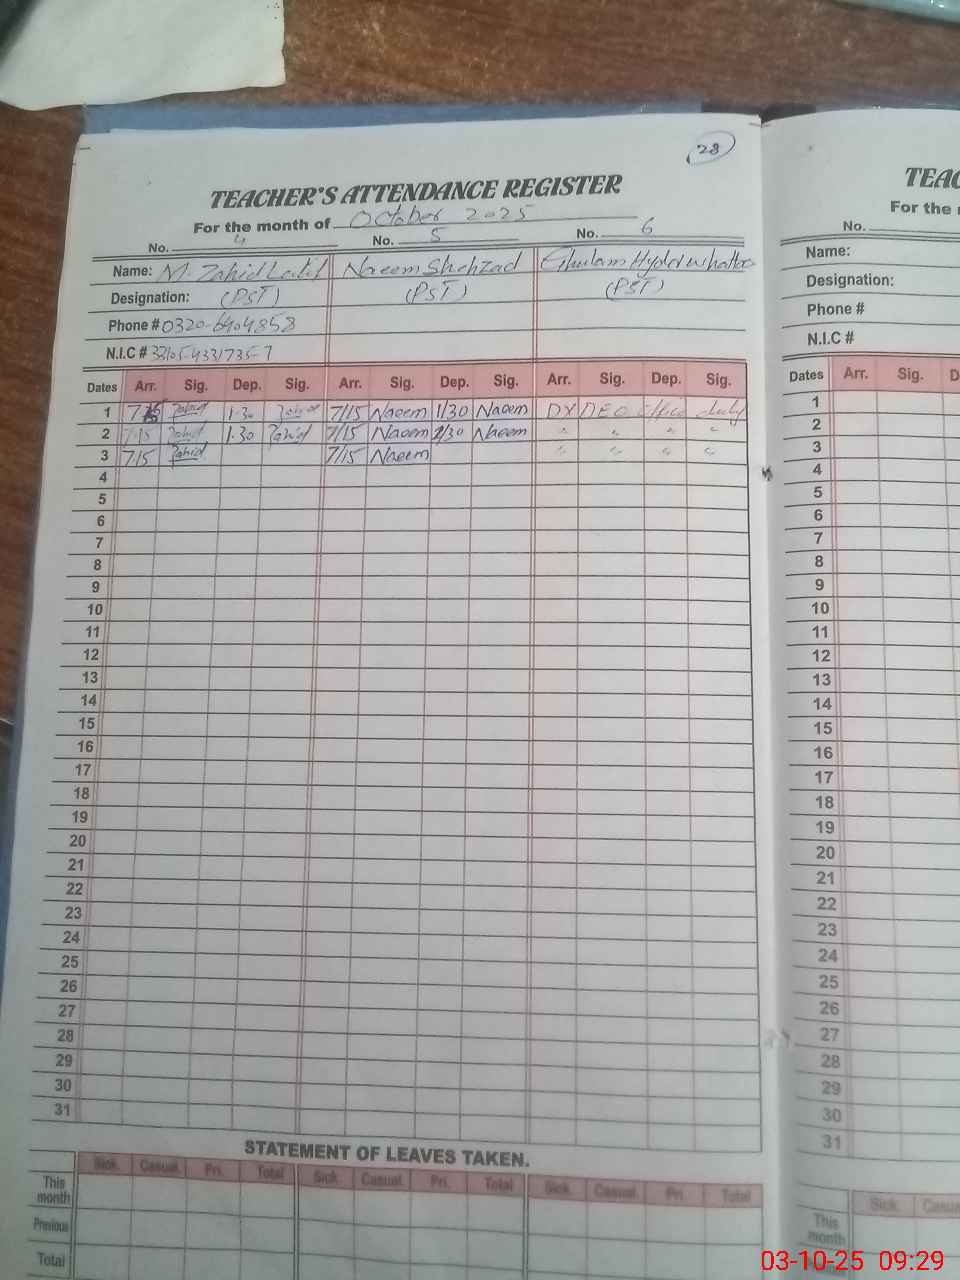 28
TEACHER'S ATTENDANCE REGISTER
For the month of October 2025
No. 4 No. 5 No. 6
Name: M. Zahid Latif Naeem Shehzad Ghulam Hyder
Designation: (PST) (PST) (PST)
Phone # 0320-6404858
N.I.C # 33105-4331735-7
Dates Arr. Sig. Dep. Sig. Arr. Sig. Dep. Sig. Arr. Sig. Dep. Sig.
1 7.15 Zahid 1.30 Zahid 7/15 Naeem 1/30 Naeem DY DEO office duty
2 7.15 Zahid 1.30 Zahid 7/15 Naeem 1/30 Naeem " " " "
3 7.15 Zahid 7/15 Naeem " " " "
4
5
6
7
8
9
10
11
12
13
14
15
16
17
18
19
20
21
22
23
24
25
26
27
28
29
30
31
STATEMENT OF LEAVES TAKEN.
Sick. Casual. Pri. Total Sick. Casual. Pri. Total Sick. Casual. Pri. Total
This month
Previous
Total
TEAC
For the
No.
Name:
Designation:
Phone #
N.I.C #
Dates Arr. Sig. D
1
2
3
4
5
6
7
8
9
10
11
12
13
14
15
16
17
18
19
20
21
22
23
24
25
26
27
28
29
30
31
Sick. Casu
This month
03-10-25 09:29